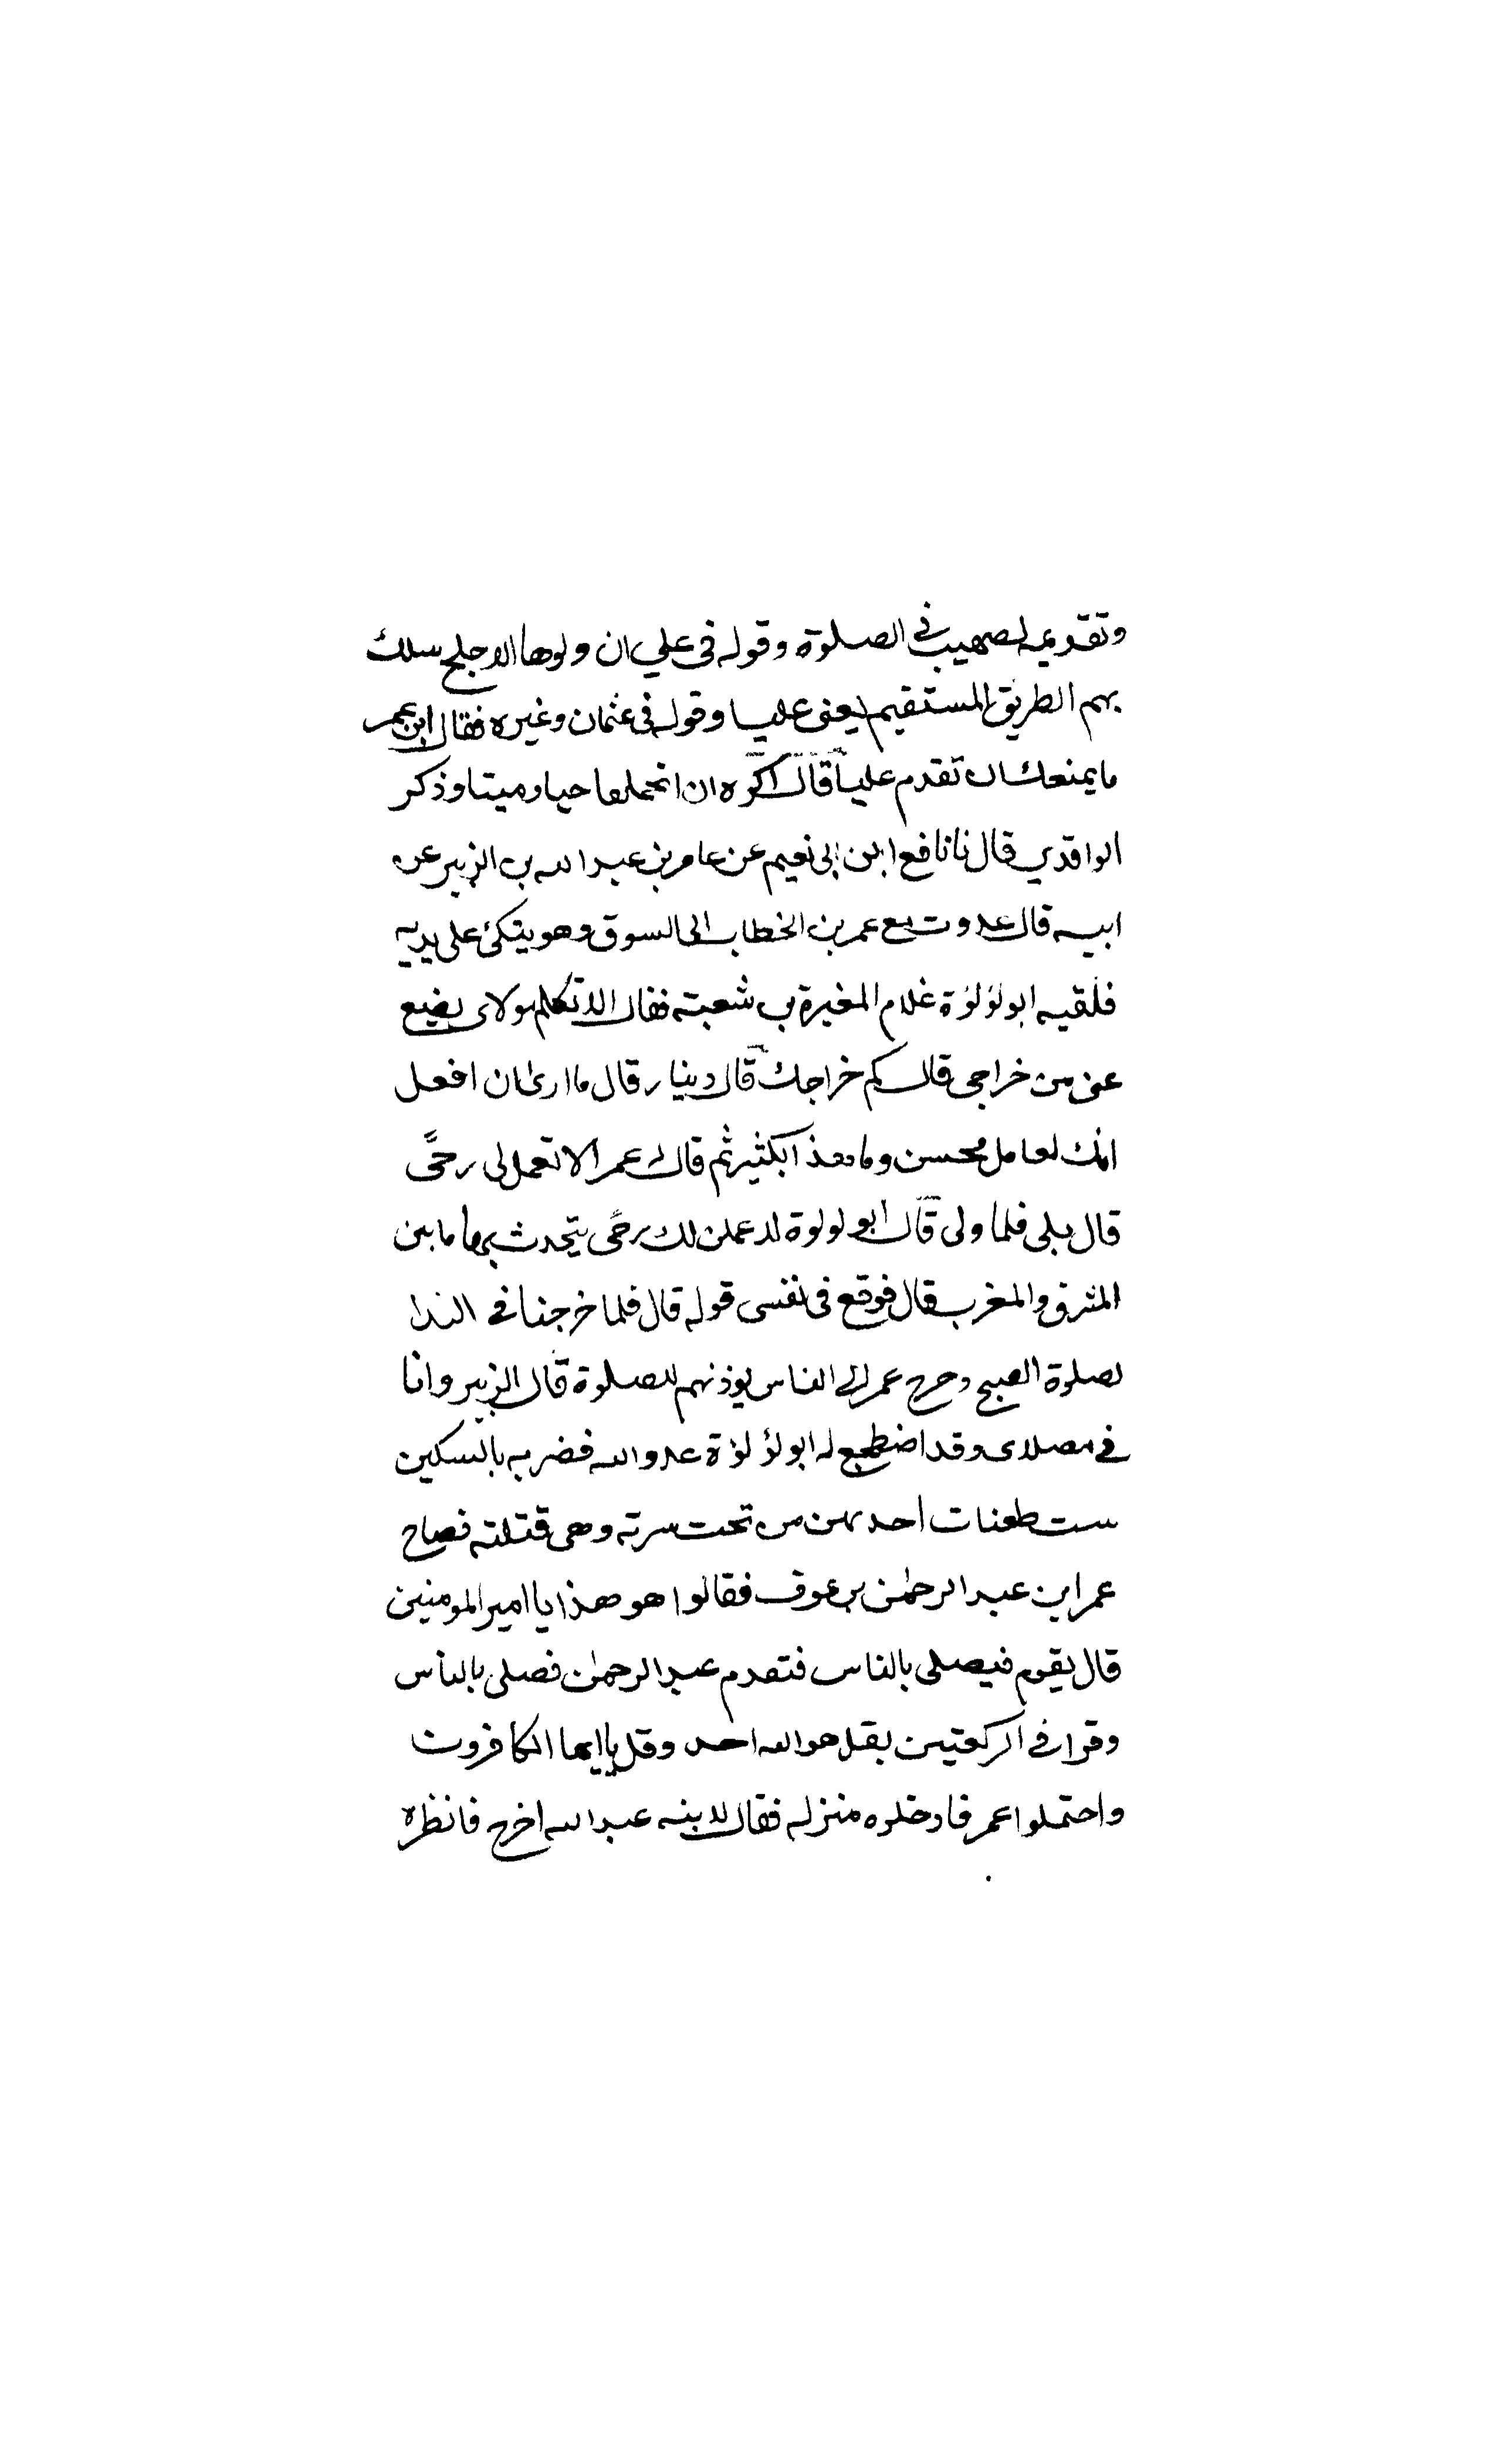 وتقديمه لصهيب في الصلوة وقوله في علي ان ولوها الاجلح سلك
بهم الطريق المستقيم يعني عليا وقوله في عثمان وغيره فقال ابن عمر
ما يمنعك ان تقدم عليا قال اكره ان اتحملها حيا وميتا وذكر
الواقدي قال نا نافع ابن ابي نعيم عن عامر بن عبد الله بن الزبير عن
ابيه قال غدوت مع عمر بن الخطاب الى السوق وهو يتكئ على يديه
فلقيه ابو لؤلؤة غلام المغيرة بن شعبة فقال الا تكلم مولاي يضع
عني من خراجي قال كم خراجك قال دينار قال ما ارى ان افعل
انك لعامل محسن وما هذا بكثير ثم قال له عمر الا تعمل لي رحًى
قال بلى فلما ولى قال ابو لولوة لاعملن لك رحًى يتحدث بها ما بين
المشرق والمغرب قال فوقع في نفسي قوله قال فلما خرجنا في الندا
لصلوة الصبح وخرج عمر الى الناس يوذنهم للصلوة قال الزبير وانا
في مصلاى وقد اضطجع له ابو لؤلؤة عدو الله فضربه بالسكين
ست طعنات احدىهن من تحت سرته وهي قتلته فصاح
عمر اين عبد الرحمٰن بن عوف فقالوا هو هذا يا امير المومنين
قال يقوم فيصلى بالناس فتقدم عبد الرحمٰن فصلى بالناس
وقرا في الركعتين بقل هو الله احد وقل يا ايها الكافرون
واحتملوا عمر فادخلوه منزله فقال لابنه عبد الله اخرج فانظره